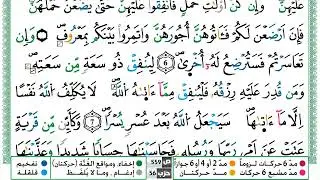 عَلَيْهِنَّ وَإِن كُنَّ أُو۟لَٰتِ حَمْلٍ فَأَنفِقُوا۟ عَلَيْهِنَّ حَتَّىٰ يَضَعْنَ حَمْلَهُنَّ
فَإِنْ أَرْضَعْنَ لَكُمْ فَـَٔاتُوهُنَّ أُجُورَهُنَّ وَأْتَمِرُوا۟ بَيْنَكُم بِمَعْرُوفٍ وَإِن
تَعَاسَرْتُمْ فَسَتُرْضِعُ لَهُۥٓ أُخْرَىٰ 6 لِيُنفِقْ ذُو سَعَةٍ مِّن سَعَتِهِۦ
وَمَن قُدِرَ عَلَيْهِ رِزْقُهُۥ فَلْيُنفِقْ مِمَّآ ءَاتَىٰهُ ٱللَّهُ لَا يُكَلِّفُ ٱللَّهُ نَفْسًا
إِلَّا مَآ ءَاتَىٰهَا سَيَجْعَلُ ٱللَّهُ بَعْدَ عُسْرٍ يُسْرًا 7 وَكَأَيِّن مِّن قَرْيَةٍ
عَتَتْ عَنْ أَمْرِ رَبِّهَا وَرُسُلِهِۦ فَحَاسَبْنَٰهَا حِسَابًا شَدِيدًا وَعَذَّبْنَٰهَا
مدّ 6 حركات لزوماً مدّ 2 أو 4 أو 6 جوازاً ص 559 إخفاء، ومواقع الغُنَّة (حركتان) تفخيم
مدّ مشبع 6 حركات مدّ حركتان حزب 56 إدغام، وما لا يُلفَظ قلقلة